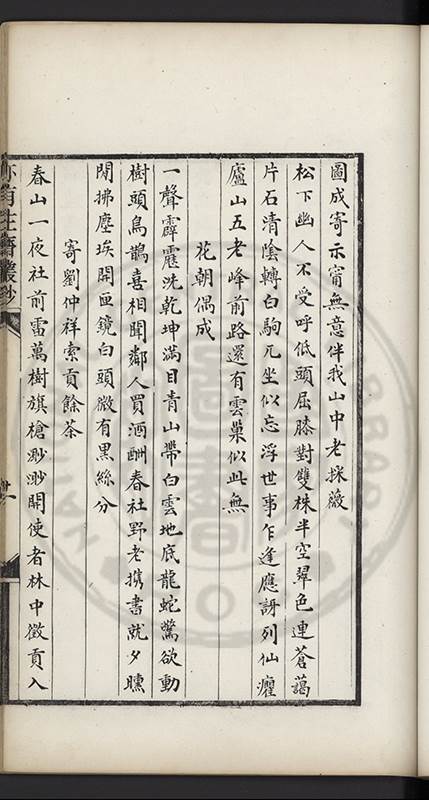 圖成寄示甯無意伴我山中老採薇
松下幽人不受呼低頭屈膝對雙株半空翠色連蒼藹
片石清陰轉白駒兀坐似忘浮世事乍逢應訝列仙癯
廬山五老峰前路還有雲巢似此無
花朝偶成
一聲霹靂洗乾坤滿目青山帶白雲地底龍蛇驚欲動
樹頭鳥鵲喜相聞鄰人買酒酬春社野老携書就夕曛
閒拂塵埃開匣鏡白頭微有黑絲分
寄劉仲祥索貢餘茶
春山一夜社前雷萬樹旗槍渺渺開使者林中徵貢入